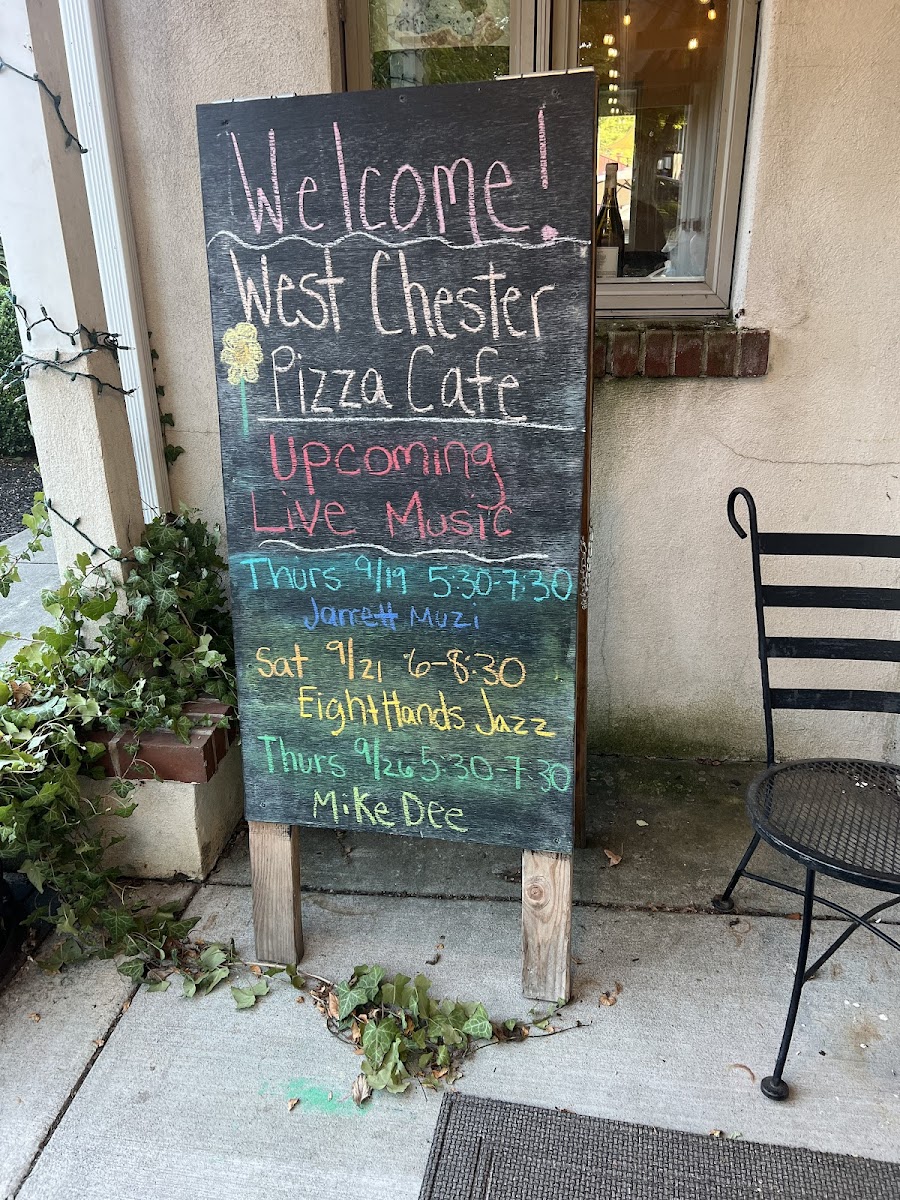 Welcome!
West Chester
Pizza Cafe
Upcoming
Live Music
Thurs 9/19 5:30-7:30
Jarrett Muzi
Sat 9/21 6-8:30
Eight Hands Jazz
Thurs 9/26 5:30-7:30
Mike Dee